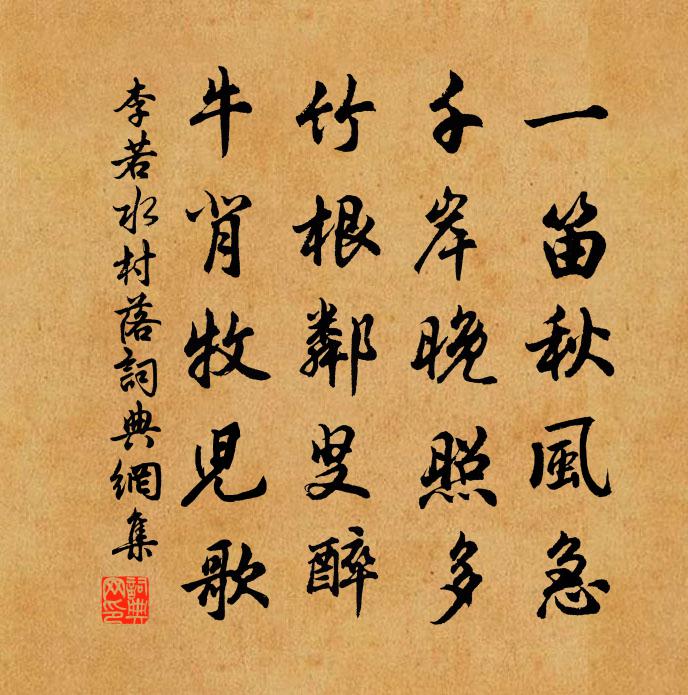 一笛秋風急
千岸晚照多
竹根鄰叟醉
牛背牧兒歌
李若水村落詞典網集
詞典網印